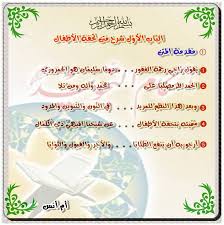 بسم الله الرحمن الرحيم
الباب الأول شرح متن تحفة الأطفال
مقدمة المتن
① يقول راجي رحمة الغفور -- دوما سليمان هو الجمزوري
② الحمد لله مصليا على -- محمد وآله ومن تلا
③ وبعد هذا النظم للمريد -- في النون والتنوين والمدود
④ سميته بتحفة الأطفال -- عن شيخنا الميهي ذي الكمال
⑤ أرجو به أن ينفع الطلابا -- والأجر والقبول والثوابا
أم أنس